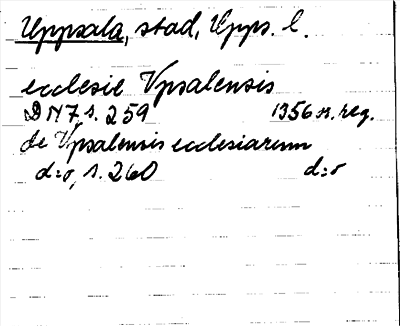 Uppsala, stad, Upps. l.
ecclesie Vpsalensis
DN7 s. 259 1356 or. reg.
de Vpsalensis ecclesiarum
d:o, s. 260 d:o